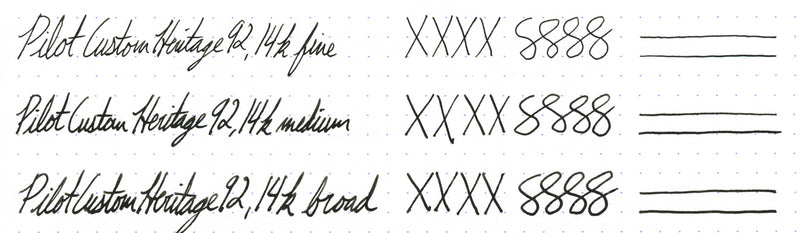 Pilot Custom Heritage 92, 14k fine XXXX 8888
Pilot Custom Heritage 92, 14k medium XXXX 8888
Pilot Custom Heritage 92, 14k broad XXXX 8888